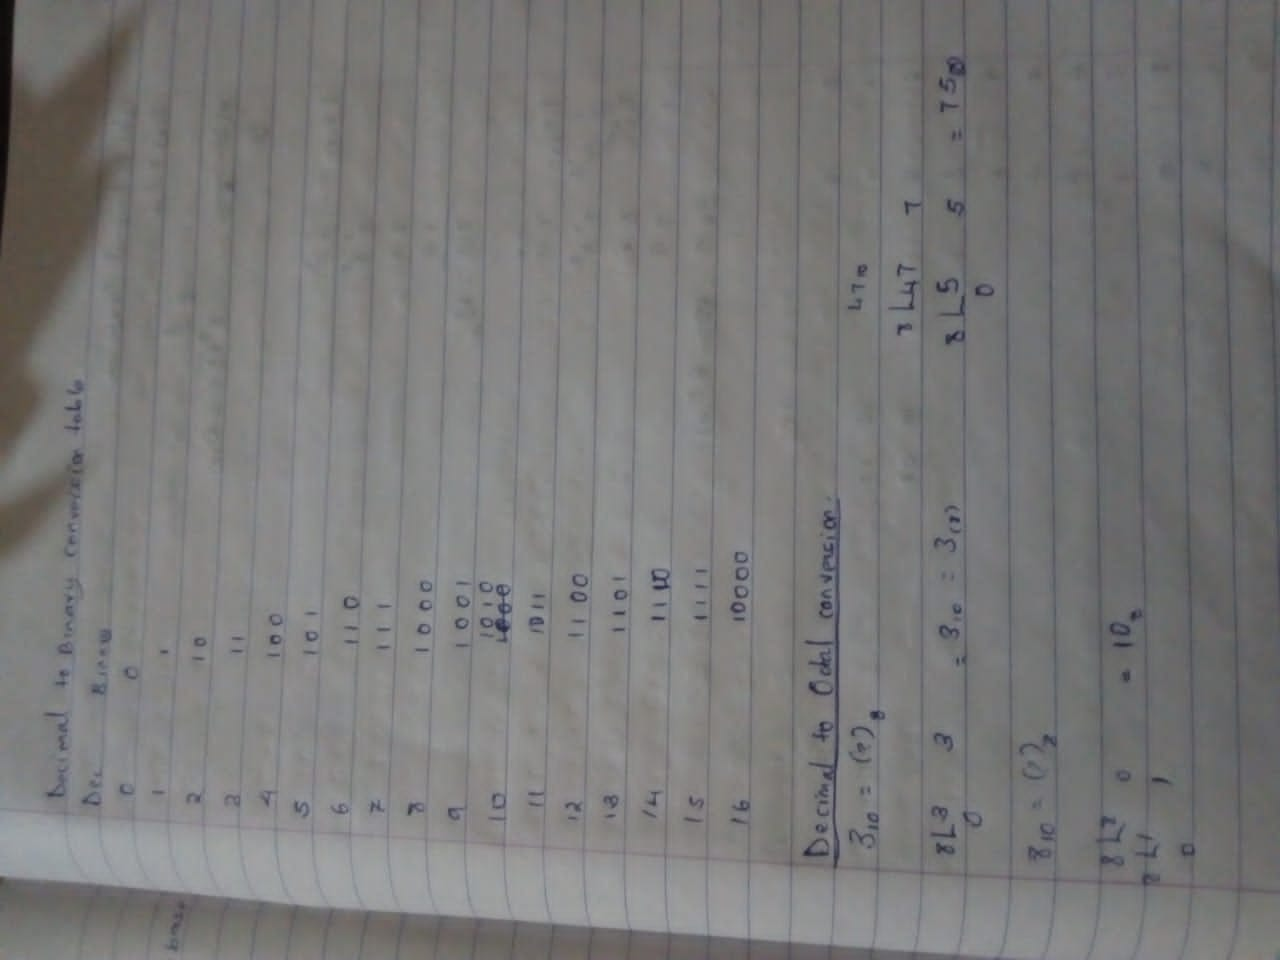 Decimal to Binary conversion table
Dec Binary
0 0
1 1
2 10
3 11
4 100
5 101
6 110
7 111
8 1000
9 1001
10 1010
11 1011
12 1100
13 1101
14 1110
15 1111
16 10000
Decimal to Octal conversion.
3₁₀ = (?)₈ 47₁₀
8∟47 7
8∟3 3 = 3₁₀ = 3₍₈₎ 8∟5 5 = 75₈
0 0
8₁₀ = (?)₈
8∟8 0 = 10₈
8∟1 1
0
bms.